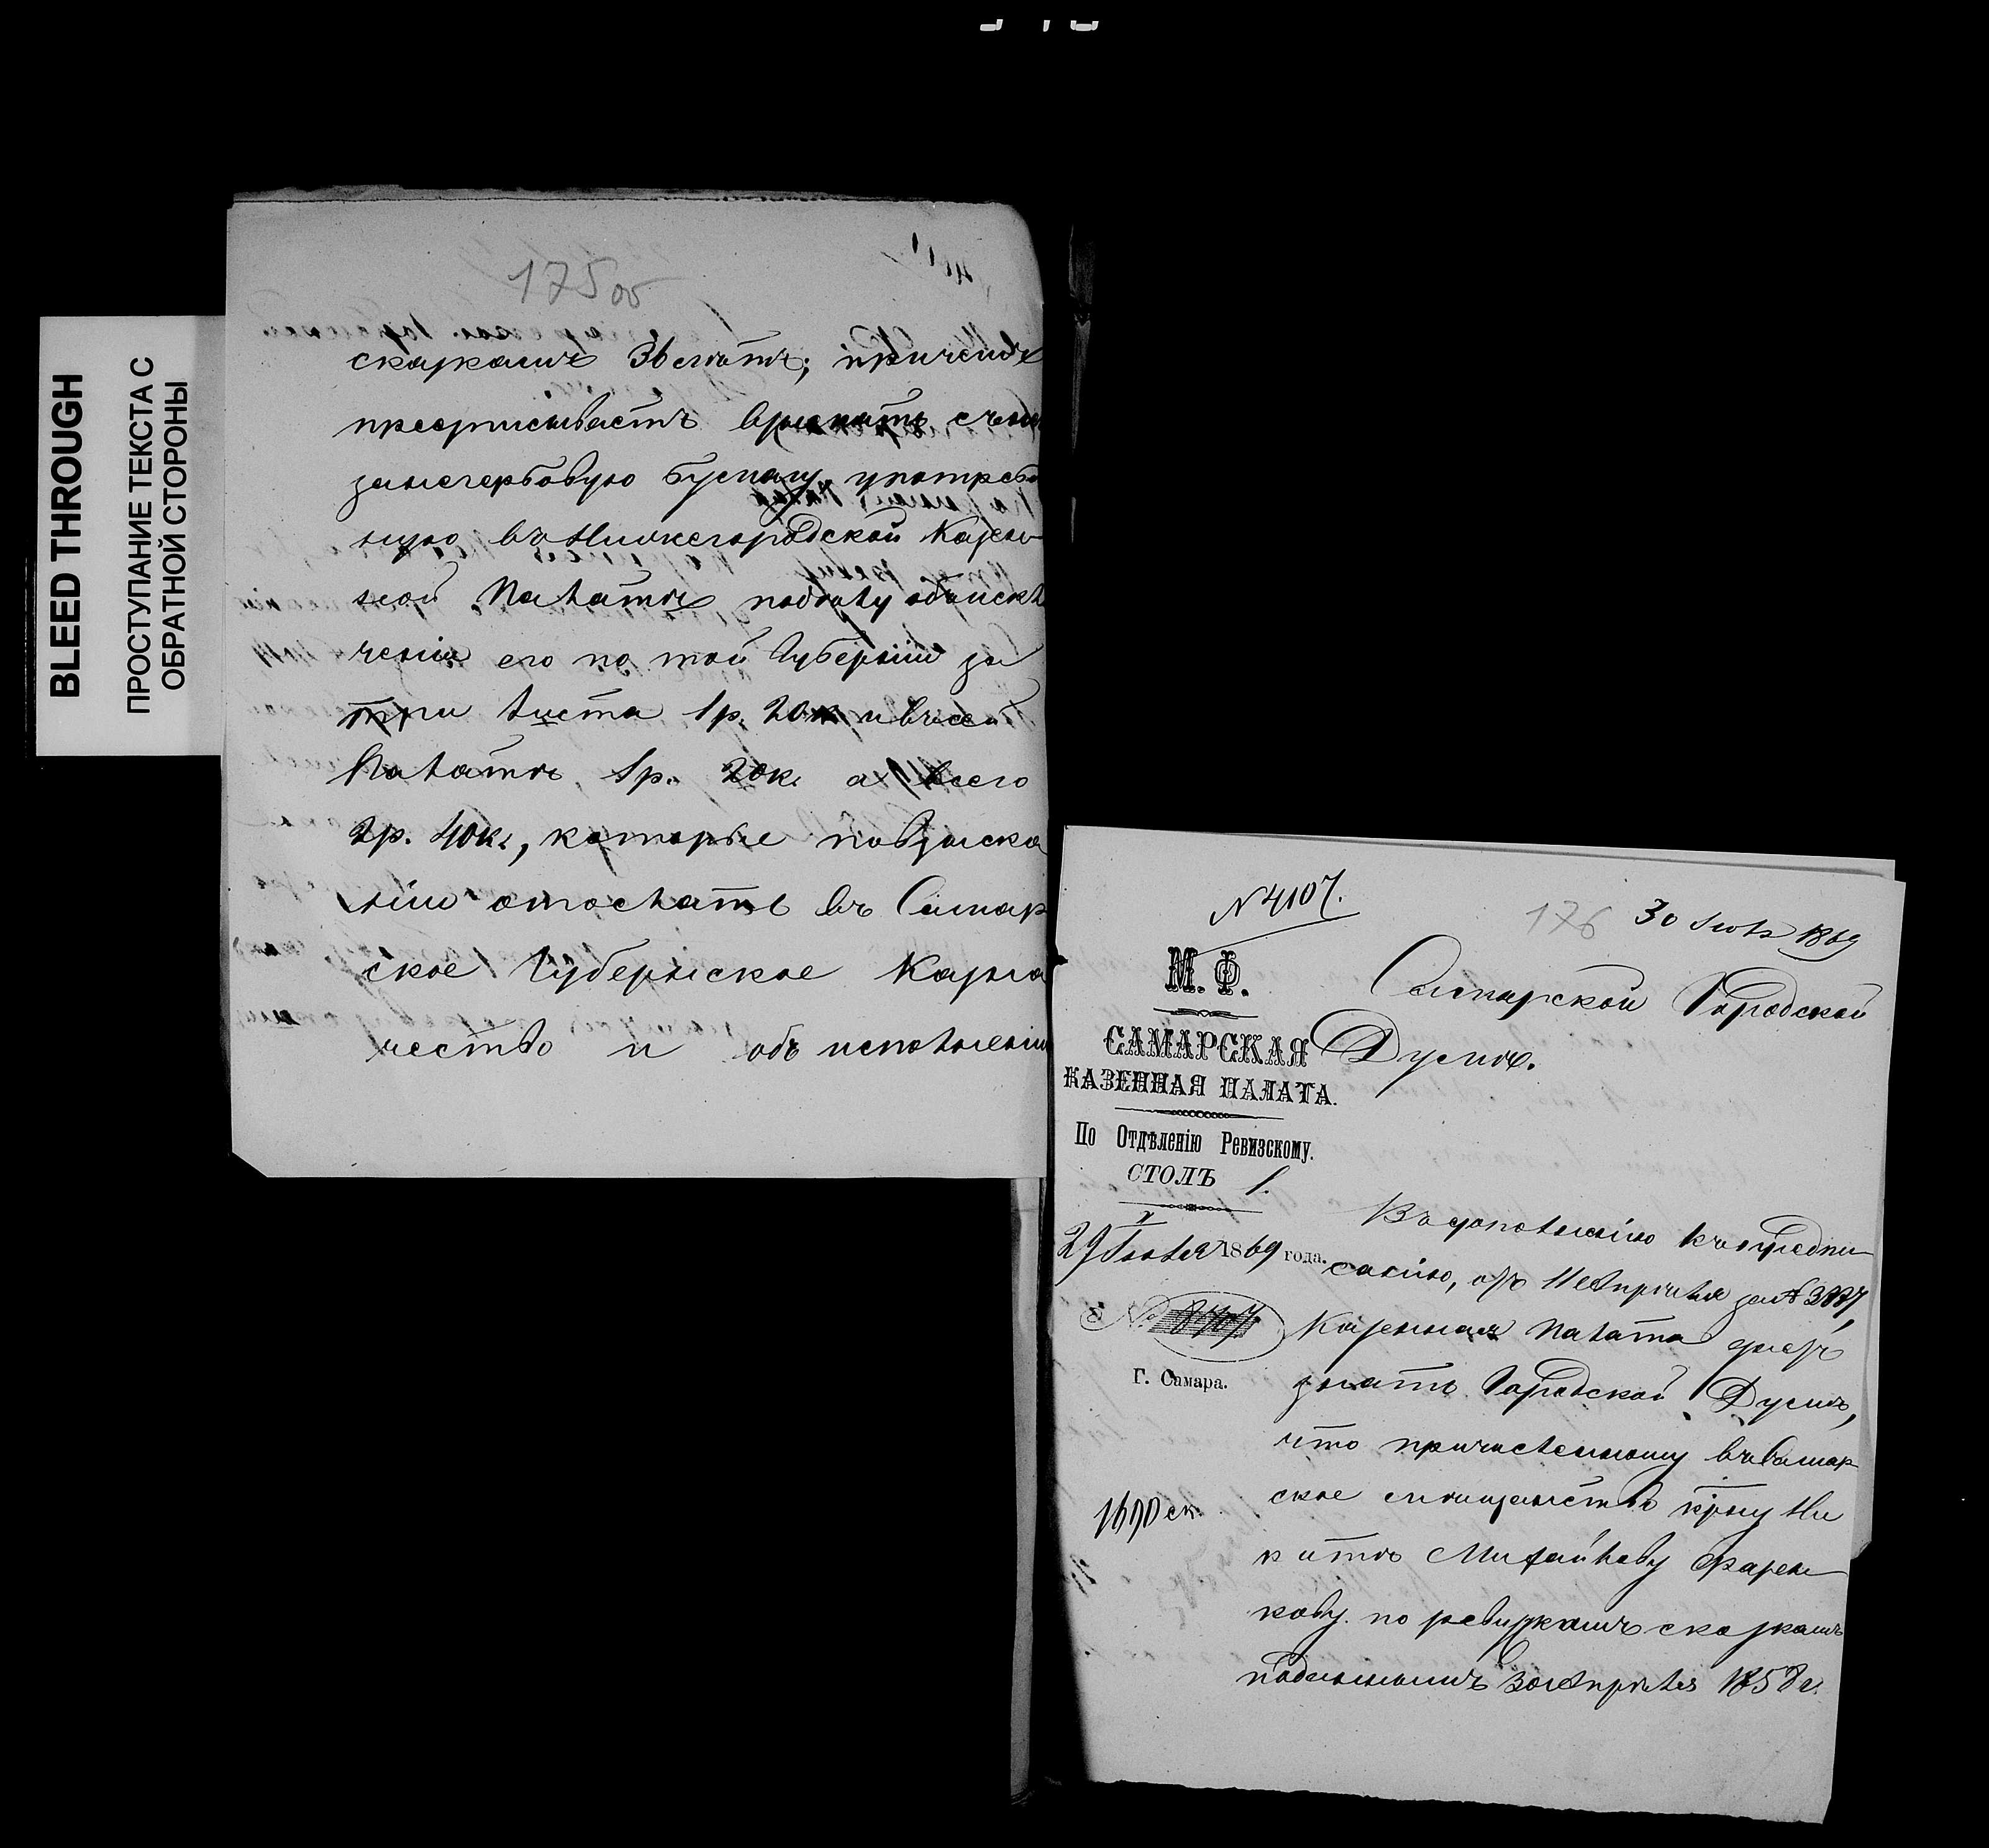 BLEED THROUGH
ПРОСТУПАНИЕ ТЕКСТА С
ОБРАТНОЙ СТОРОНЫ
175 об
сказкамъ 36 лѣтъ; причемъ
предписываетъ взыскать съ него
за негербовую бумагу употреблен
ную въ Нижегородской Казен
ной Палатѣ по дѣлу объ исклю
ченіи его по той Губерніи за
три листа 1 р. 20 к и въ сей
Палатѣ, 1 р. 20 к. а всего
2 р. 40 к., которые по взыска
ніи отослать въ Самар
ское Губернское Казна
чество и объ исполненіи
N 4107.
176 30 Іюля 1869
М. Ф.
САМАРСКАЯ
КАЗЕННАЯ ПАЛАТА.
По Отдѣленію Ревизскому.
СТОЛЪ 1.
29 Іюля 1869 года.
№ 8707
Г. Самара.
1690 ск.
Самарской Городской
Думѣ.
Въ дополненію къ предпи
санію, отъ 11 Апрѣля за №
Казенная Палата даетъ
знать Городской Думѣ,
что причисленному въ Самар
ское мѣщанство Ни
китѣ Михайлову
кову по ревизкимъ сказкамъ
поданнымъ 30 Апрѣля 1858 г.